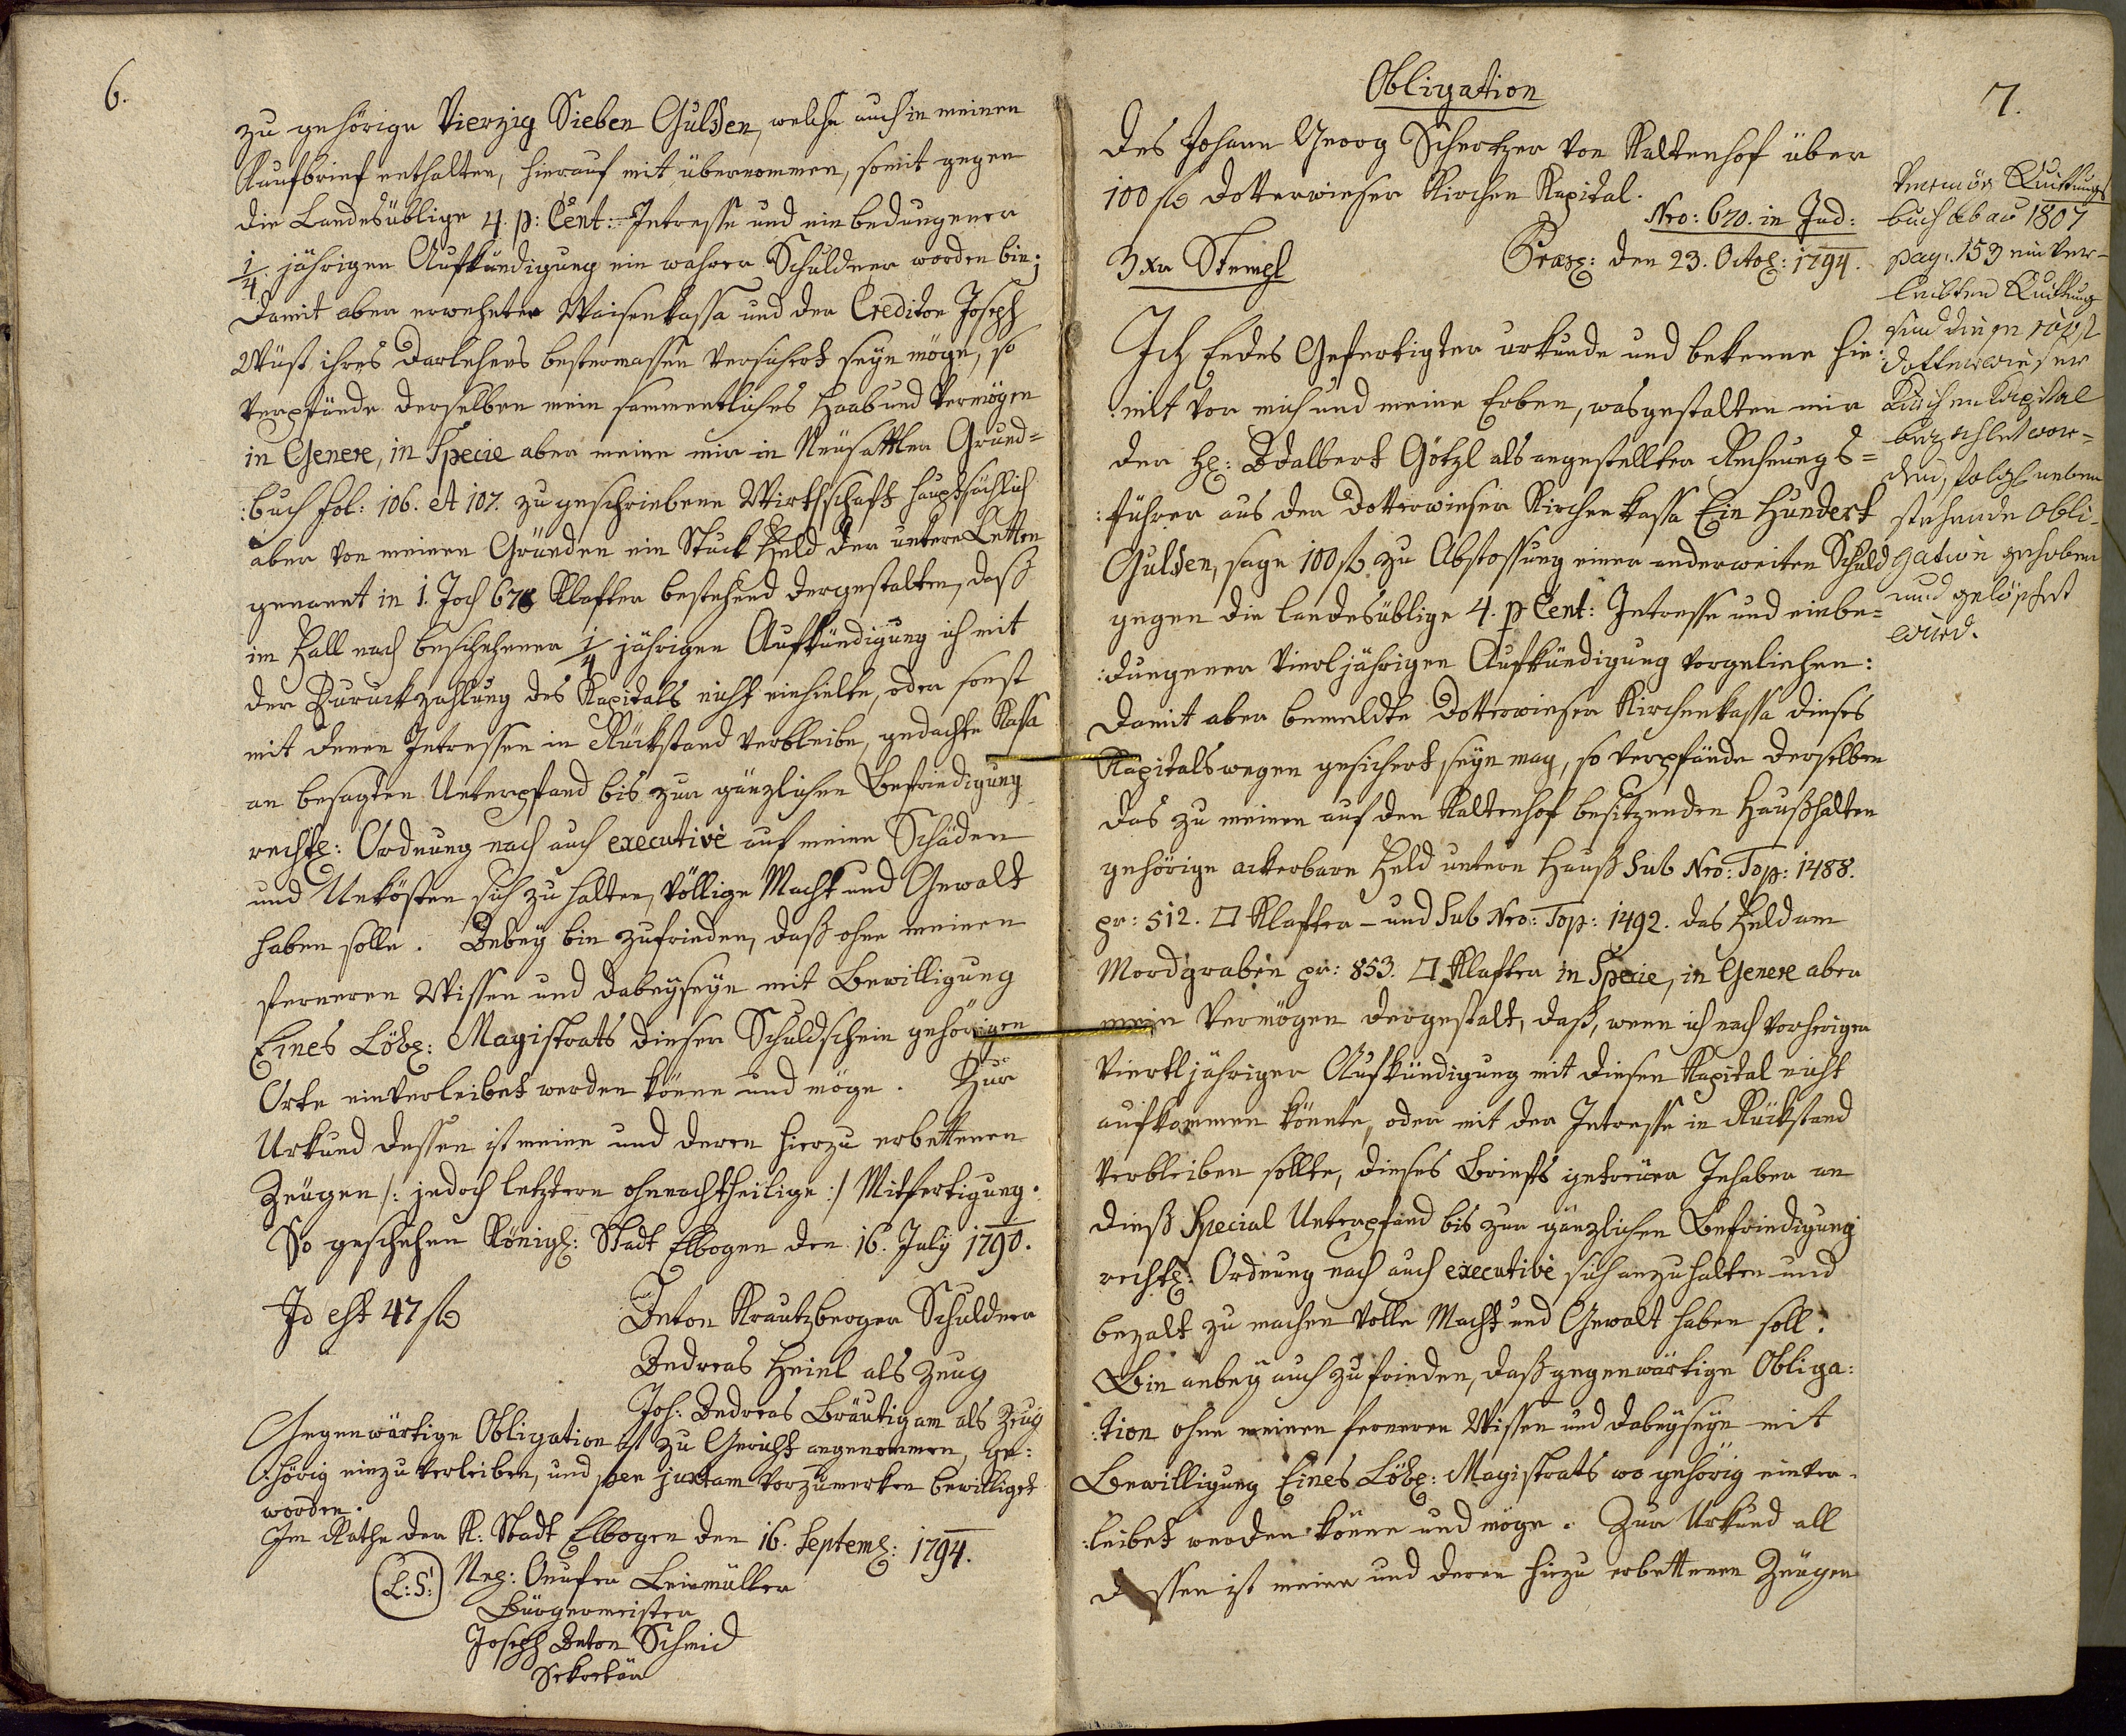 6.
zu gehörige Vierzig Sieben Gulden, welche auch in meinen
Kaufbrief enthalten, hierauf mit übernommen, somit gegen
die Landesüblige 4. p: Cent: Intresse und einbedungener
1/4 jährigen Aufkündigung ein wahrer Schuldner worden bin;
Damit aber erwehnter Waisenkassa und der Creditor Joseph
Wüst ihres Darlehens bestermassen versichert seyn möge, so
verpfände derselben mein sammentliches Haab und Vermögen
in Genere, in Specie aber meine mir in Neusattler Grund=
:buch fol: 106. et 107. zu geschriebene Wirthschaft hauptsächlich
aber von meinen Gründen ein Stuck Feld der untere Letten
genannt in 1. Joch 678 Klafter bestehend dergestalten, daß
im Fall nach beschehener 1/4 jährigen Aufkündigung ich mit
der Zuruckzahlung des Kapitals nicht einhielte, oder sonst
mit denen Intressen in Rückstand verbleibe, gedachte Kassa
an besagten Unterpfand bis zur gänzlichen Befriedigung
rechtl: Ordnung nach auch executivè auf meine Schäden
und Unkösten sich zu halten, völlige Macht und Gewalt
haben solle. Anbey bin zufrieden, daß ohne meinen
ferneren Wissen und dabeyseyn mit Bewilligung
Eines Löbl: Magistrats dieser Schuldschein gehörigen
Orte einverleibet werden könne und möge. Zur
Urkund dessen ist meine und deren hierzu erbettenen
Zeugen /: jedoch letztern ohnnachtheilige :/ Mitfertigung.
So geschehen Königl: Stadt Elbogen den 16. July 1790.
Id est 47 f
Anton Krautzberger Schuldner
Andreas Heinl als Zeug
Joh: Andreas Bräutigam als Zeug
Gegenwärtige Obligation ist zu Gericht angenommen, ge:
:hörig einzuverleiben, und per juxtam vorzumerken bewilliget
worden.
Im Rathe der K: Stadt Elbogen den 16. Septemb: 1794.
(L:S:) Onufer Leinmüller
Bürgermeister
Joseph Anton Schmid
Sekretär
7.
Obligation
des Johann Georg Schertzer von Kaltenhof über
100 f Dotterwieser Kirchen Kapital.
Nro: 670. in Ind:
3 xr Stempl
Præs: den 23. Octob: 1794.
Ich Endes Gefertigter urkunde und bekenne hie:
:mit vor mich und meine Erben, was gestalten mir
der H: Adalbert Götzl als angestellter Rechnungs=
:führer aus der Dotterwieser Kirchenkassa Ein Hundert
Gulden, sage 100 f zu Abstossung einer anderweiten Schuld
gegen die landesüblige 4. p Cent: Intresse und einbe=
:dungener viertljährigen Aufkündigung vorgeliehen:
Damit aber bemeldte Dotterwieser Kirchenkassa dieses
Kapitals wegen gesichert seyn mag, so verpfände derselben
das zu meinen auf den Kaltenhof besitzenden Haußhalten
gehörige ackerbare Feld untern Hauß Sub Nro: Top: 1488.
pr: 512. □ Klafter – und Sub Nro: Top: 1492. das Feld am
Mordgraben pr: 853. □ Klafter in Specie, in Genere aber
mein Vermögen dergestalt, daß, wenn ich nach vorherigen
viertljähriger Aufkündigung mit diesen Kapital nicht
aufkommen könnte, oder mit der Intresse in Rückstand
verbleiben sollte, dieses Briefs getreuer Inhaber an
dieß Special Unterpfand bis zur gänzlichen Befriedigung
rechtl: Ordnung nach auch executivè sich anzuhalten und
bezalt zu machen volle Macht und Gewalt haben soll.
Bin anbey auch zufrieden, daß gegenwärtige Obliga:
:tion ohne meinen ferneren Wissen und dabeyseyn mit
Bewilligung Eines Löbl: Magistrats wo gehörig einver-
:leibet werden könne und möge. Zur Urkund all
dessen ist meine und deren hiezu erbettenen Zeugen
Vermög Quittungs
buch ab ao 1807
pag: 153 einver-
leibten Quittung
sind diese 100 f
Dotterwieser
Kirchen Kapital
bezahlet wor=
den, solch neben
stehende Obli-
gation gehoben
und gelöschet
wird.